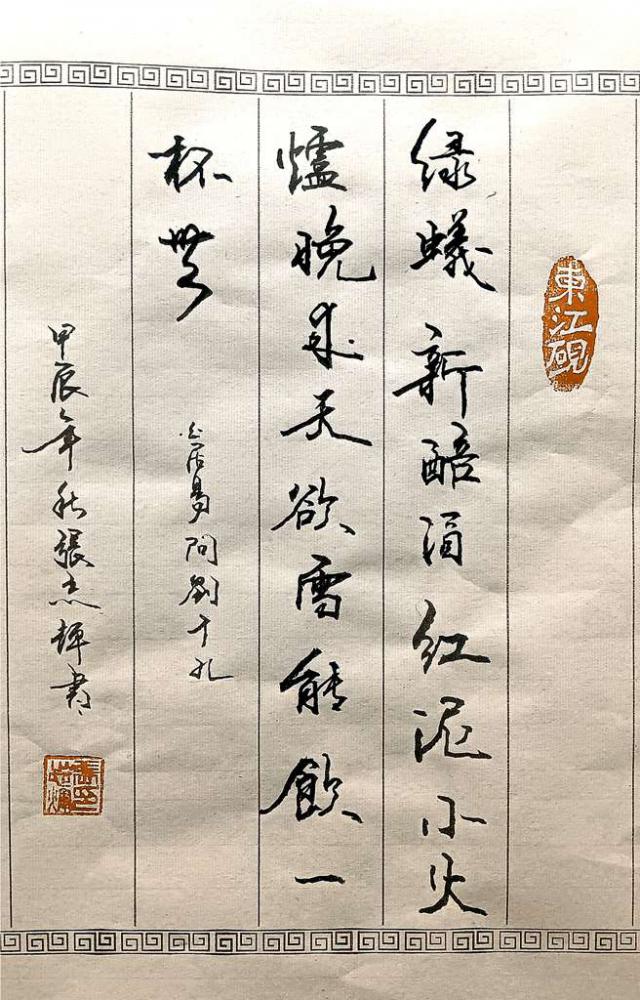 東江硯
绿蟻新醅酒红泥小火
爐晚来天欲雪能飲一
杯無
白居易问劉十九
甲辰年秋張杰輝書